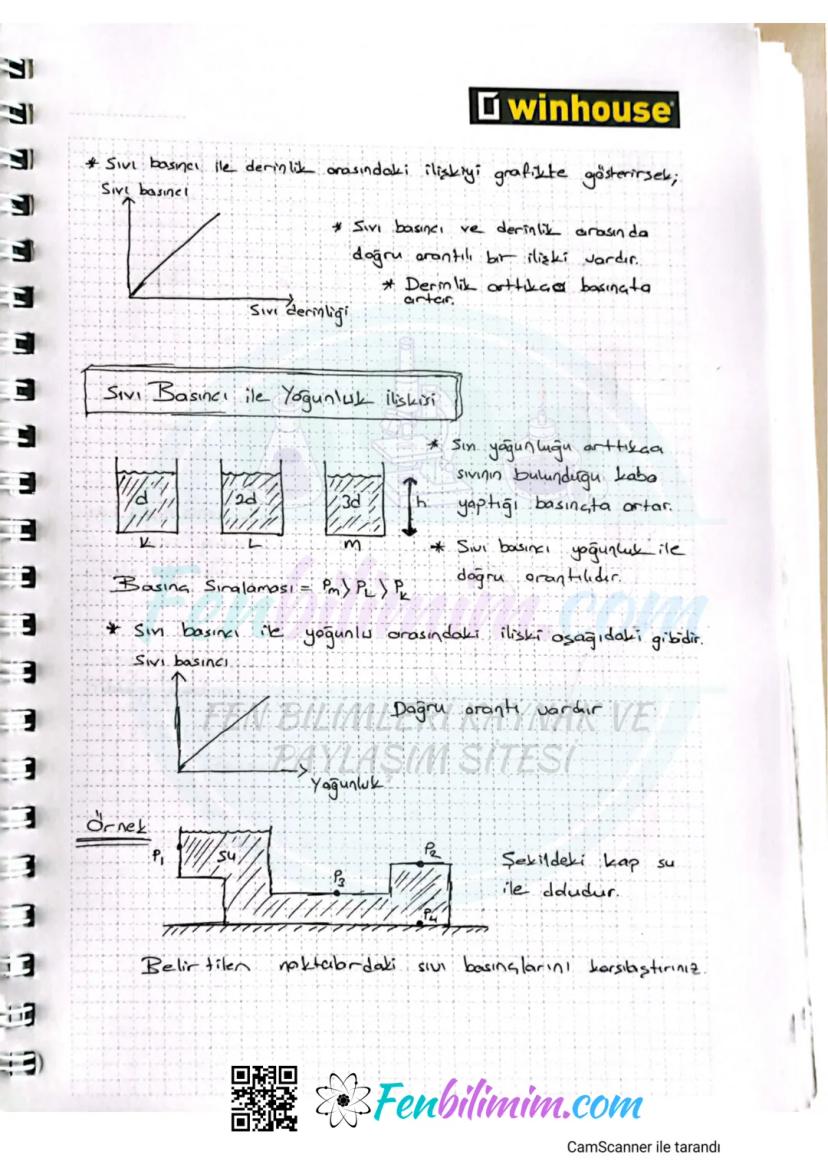 winhouse
* Sıvı basıncı ile derinlik arasındaki ilişkiyi grafikte gösterirsek;
Sıvı basıncı
* Sıvı basıncı ve derinlik arasında
doğru orantılı bir ilişki vardır.
* Derinlik arttıkça basınçta
artar.
Sıvı derinliği
Sıvı Basıncı ile Yoğunluk ilişkisi
* Sıvı yoğunluğu arttıkça
sıvının bulunduğu kaba
yaptığı basınçta artar.
d 2d 3d h
K L m
* Sıvı basıncı yoğunluk ile
doğru orantılıdır.
Basınç Sıralaması = Pm > PL > Pk
Fenbilimim.com
* Sıvı basıncı ile yoğunlu arasındaki ilişki aşağıdaki gibidir.
Sıvı basıncı
Doğru orantı vardır
FEN BİLİMLERİ KAYNAK VE
PAYLAŞIM SİTESİ
Yoğunluk
Örnek
P1 su P3 P2 P4
Şekildeki kap su
ile doludur.
Belirtilen noktalardaki sıvı basınçlarını karşılaştırınız.
Fenbilimim.com
CamScanner ile tarandı